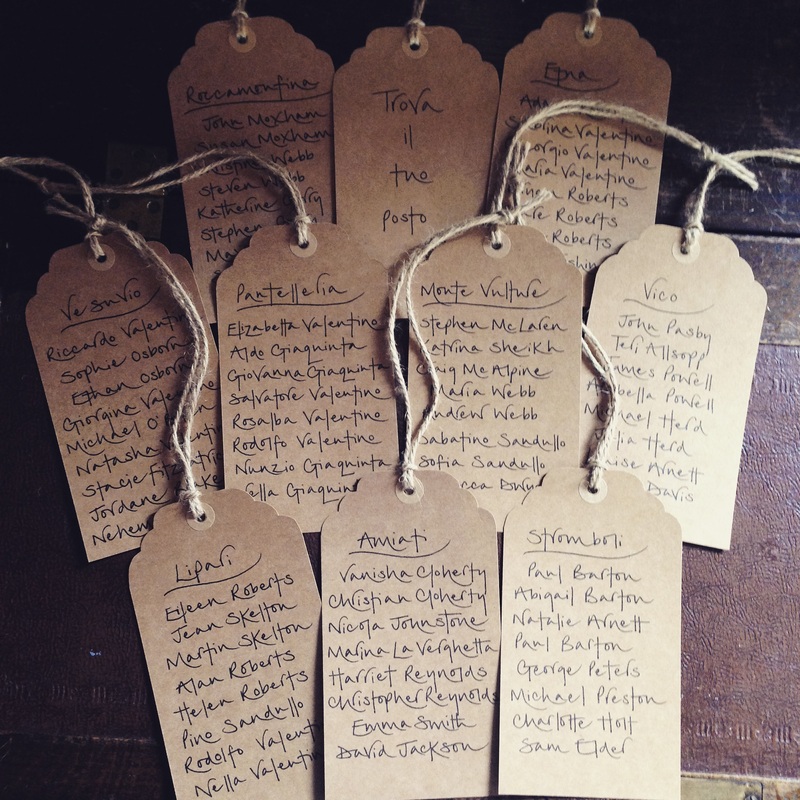 Roccamonfina
John Moxham
Susan Moxham
Webb
Steven Webb
Katherine
Stephen
Trova
il
tuo
posto
Etna
Valentino
Valentino
Valentino
Roberts
Roberts
Roberts
Vesuvio
Riccardo
Sophie Osborn
Ethan Osborn
Giorgina
Michael
Natasha
Stacie
Jordane
Pantelleria
Elizabetta Valentino
Aldo Giaquinta
Giovanna Giaquinta
Salvatore Valentino
Rosalba Valentino
Rodolfo Valentino
Nunzio Giaquinta
Monte Vulture
Stephen McLaren
Sheikh
McAlpine
Maria Webb
Andrew Webb
Sabatino Sandullo
Sofia Sandullo
Vico
John Pasby
Teri Allsopp
James Powell
Powell
Michael Herd
Julia Herd
Arnett
Davis
Lipari
Eileen Roberts
Jean Skelton
Martin Skelton
Alan Roberts
Helen Roberts
Pino Sandullo
Rodolfo
Nella
Amiati
Vanisha Cloherty
Christian Cloherty
Nicola Johnstone
Marina La Verghetta
Harriet Reynolds
Christopher Reynolds
Emma Smith
David Jackson
Stromboli
Paul Barton
Abigail Barton
Natalie Arnett
Paul Barton
George Peters
Michael Preston
Charlotte Holt
Sam Elder